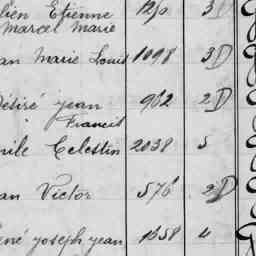 lien Etienne 1250 3D
Marcel Marie
an Marie Louis 1098 3D
Désiré jean 962 2D
Francis
mile Celestin 2038 5
an Victor 576 2D
ené joseph jean 1658 4